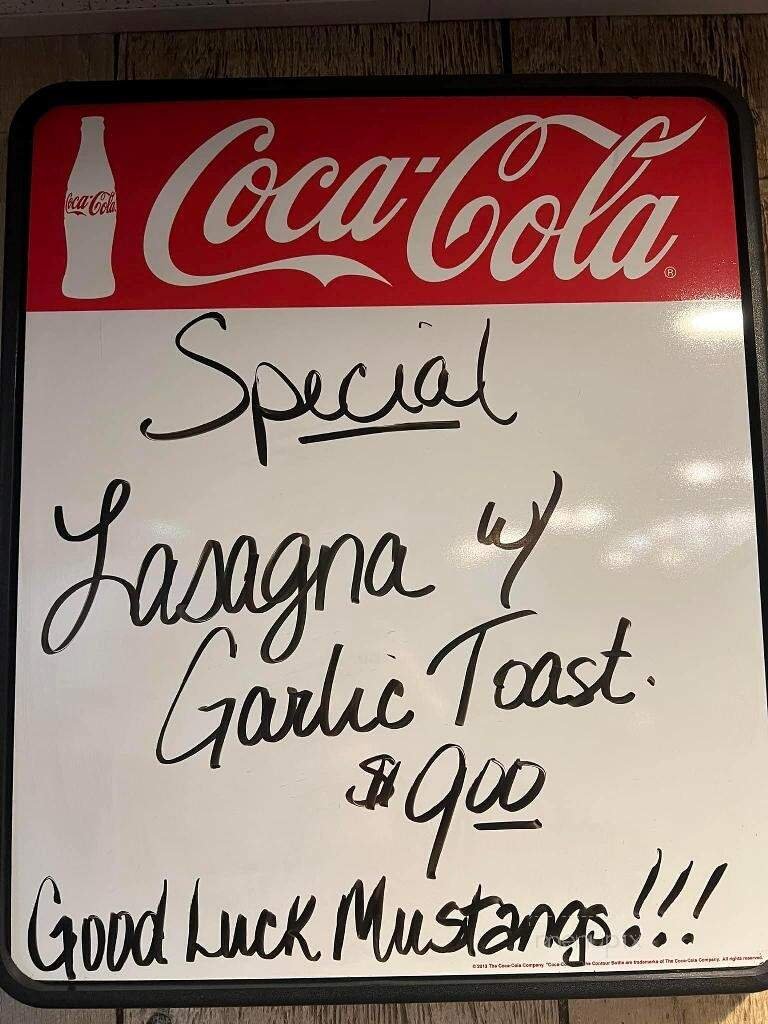 Coca-Cola
Coca-Cola ®
Special
Lasagna w/
Garlic Toast.
$9.00
Good Luck Mustangs!!!
©2013 The Coca-Cola Company.
the Contour Bottle are trademarks of The Coca-Cola Company. All rights reserved.